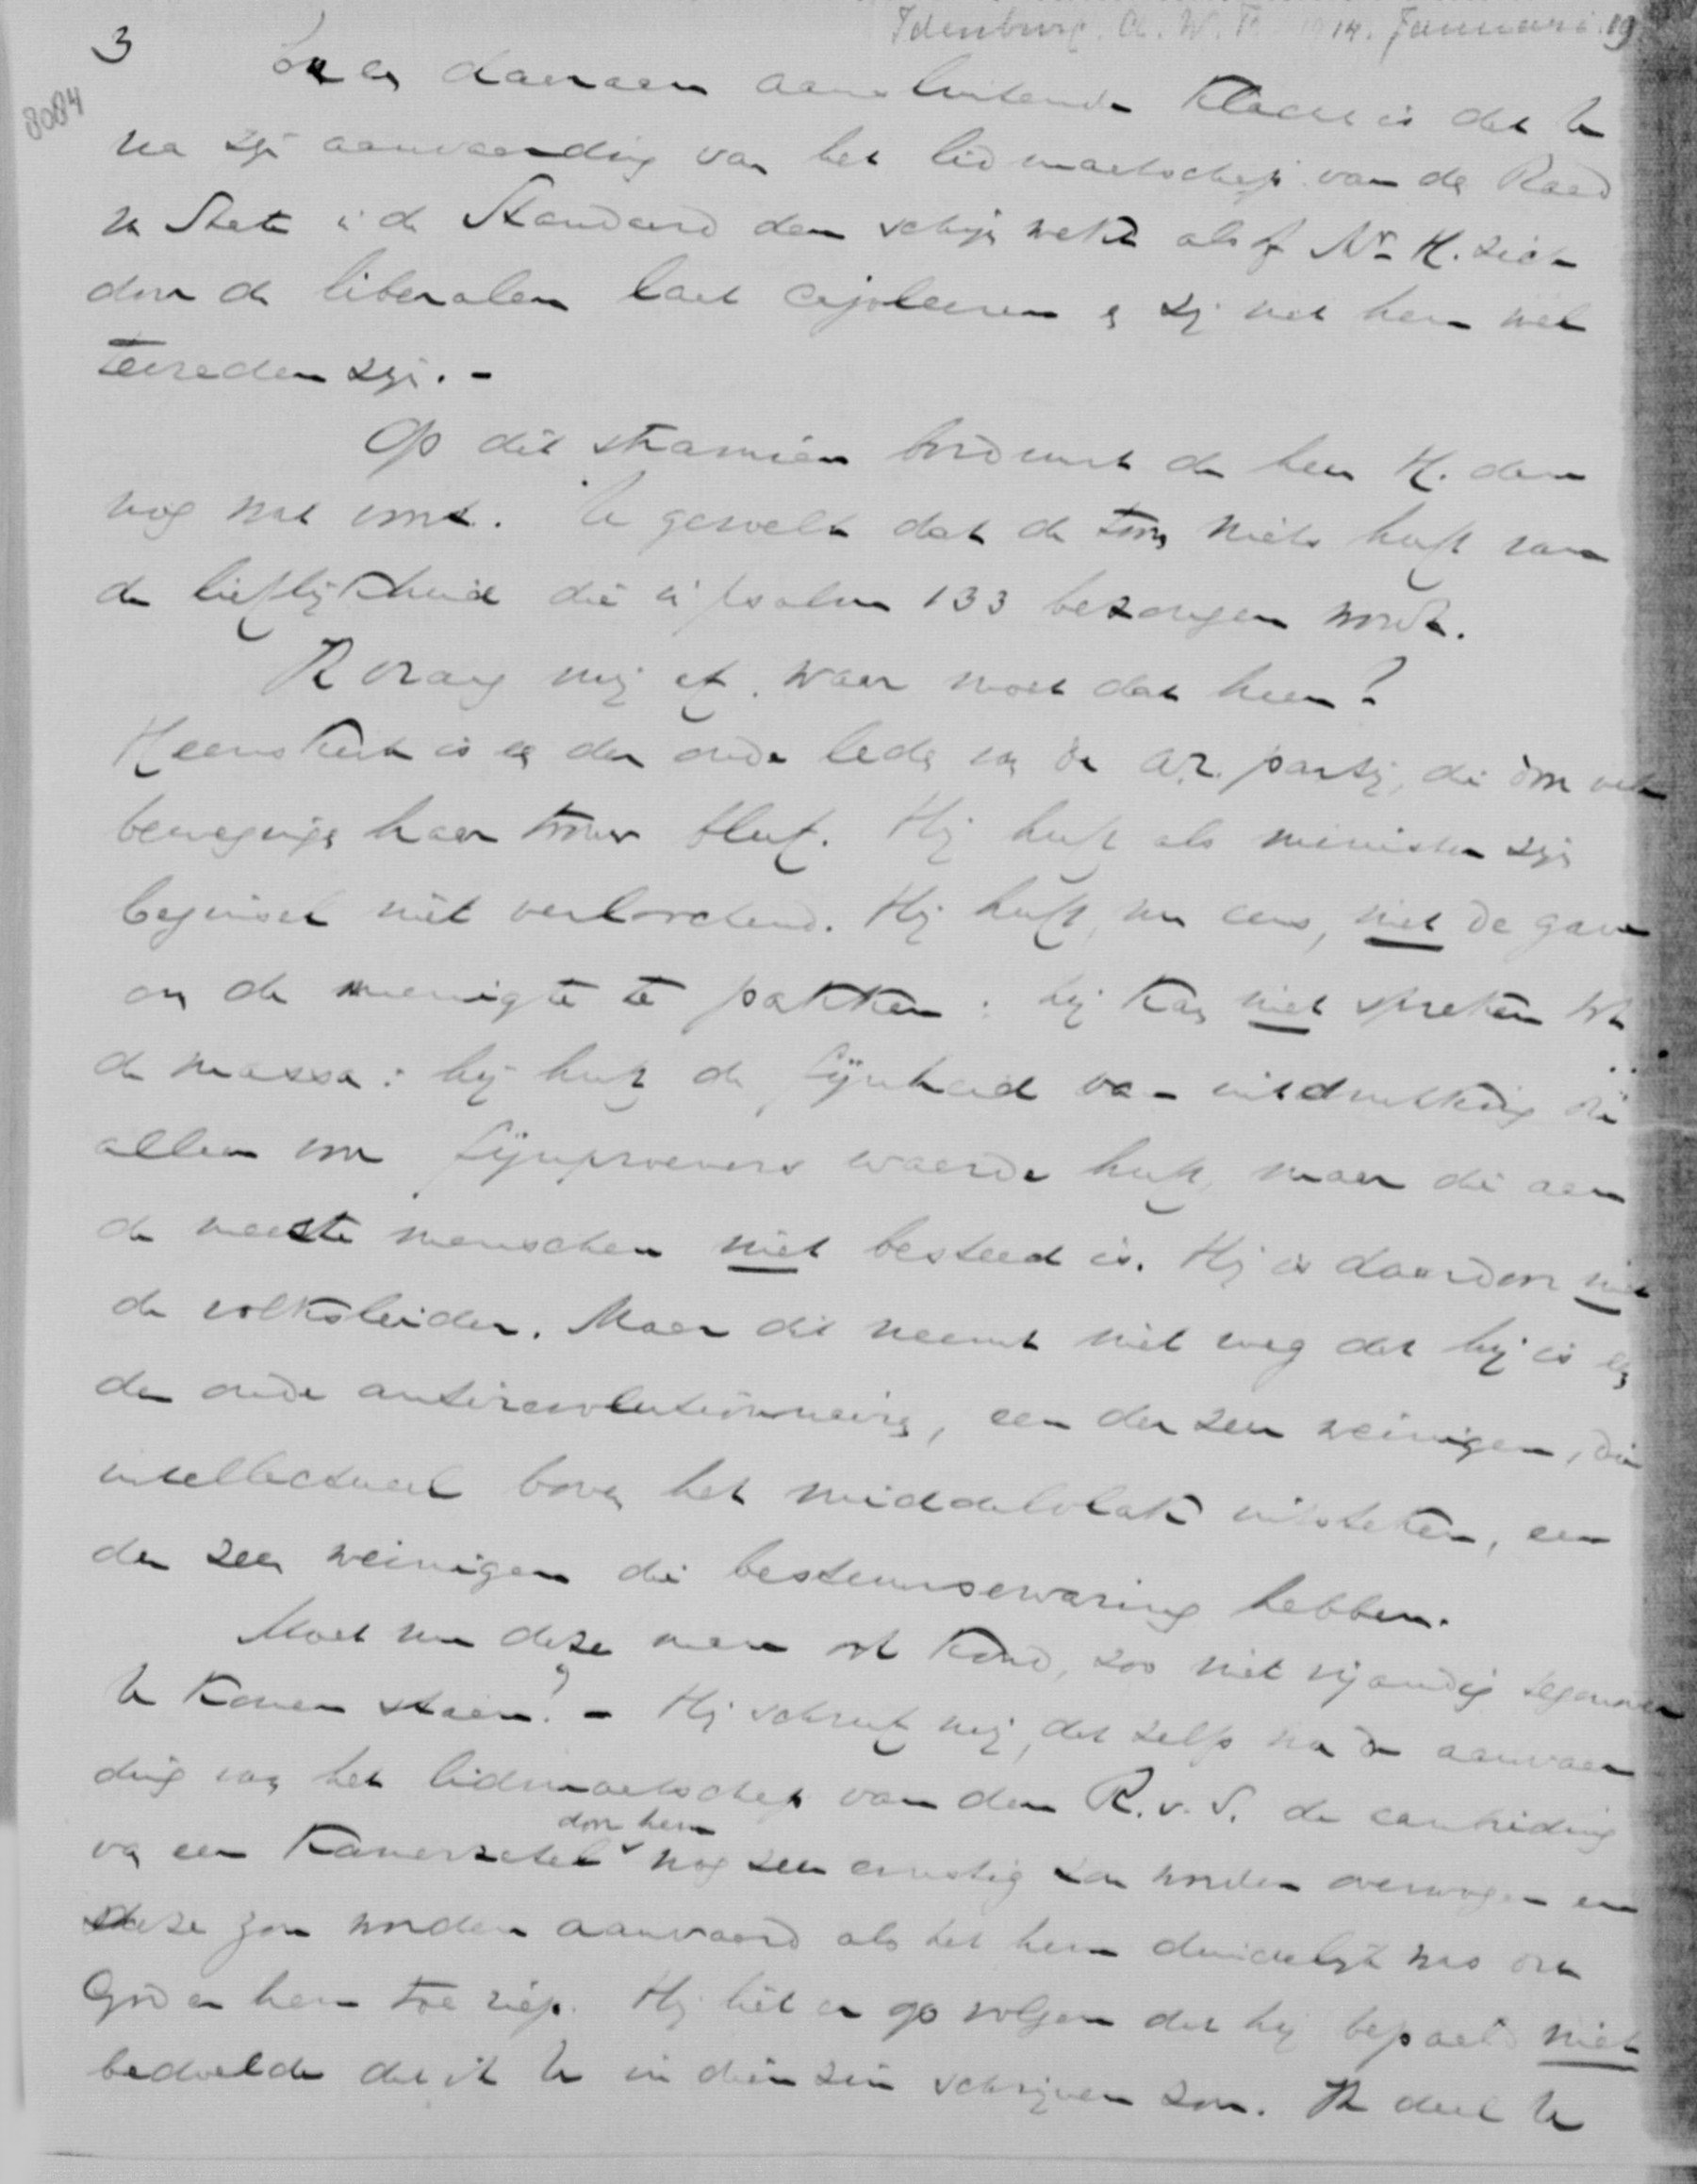 Idenburg. A. W. F. 1914. Januari. 19
3
8084
Een daaraan aansluitende klacht is dat U
na zijn aanvaarding van het lidmaatschap van de Raad
v. State in de Standaard den schijn wekt alsof Mr H. zich
door de liberalen laat cajoleeren en zij met hem wel
tevreden zijn. -
Op dit stramien borduurt de heer H. dan
nog wat voort. U gevoelt dat de toon niets heeft van
de lieflijkheid die in psalm 133 bezongen wordt.
Ik vraag mij af, waar moet dat heen?
Heemskerk is een der oude leden van de a.r. partij, die door vele
bewegingen haar trouw bleef. Hij heeft als minister zijn
beginsel niet verloochend. Hij heeft, nu eens, niet de gave
om de menigte te pakken: hij kan niet spreken tot
de massa: hij heeft de fijnheid van uitdrukking die
alleen voor fijnproevers waarde heeft, maar die aan
de meeste menschen niet besteed is. Hij is daardoor niet
de volksleider. Maar dit neemt niet weg dat hij is een
der oude antirevolutionnairen, een der zeer weinigen, die
intellectueel boven het middelvlak uitsteken, een
der zeer weinigen die bestuurservaring hebben.
Moet nu deze man ook koud, zoo niet vijandig tegenover
U komen staan? - Hij schreef mij, dat zelfs na de aanvaar
ding van het lidmaatschap van den R.v.S. de aanbieding
van een Kamerzetel door hem nog zeer ernstig zou worden overwogen en
deze zou worden aanvaard als het hem duidelijk was dat
God er hem toe riep. Hij liet er op volgen dat hij bepaald niet
bedoelde dat ik U in dien zin schrijven zou. Ik deel U